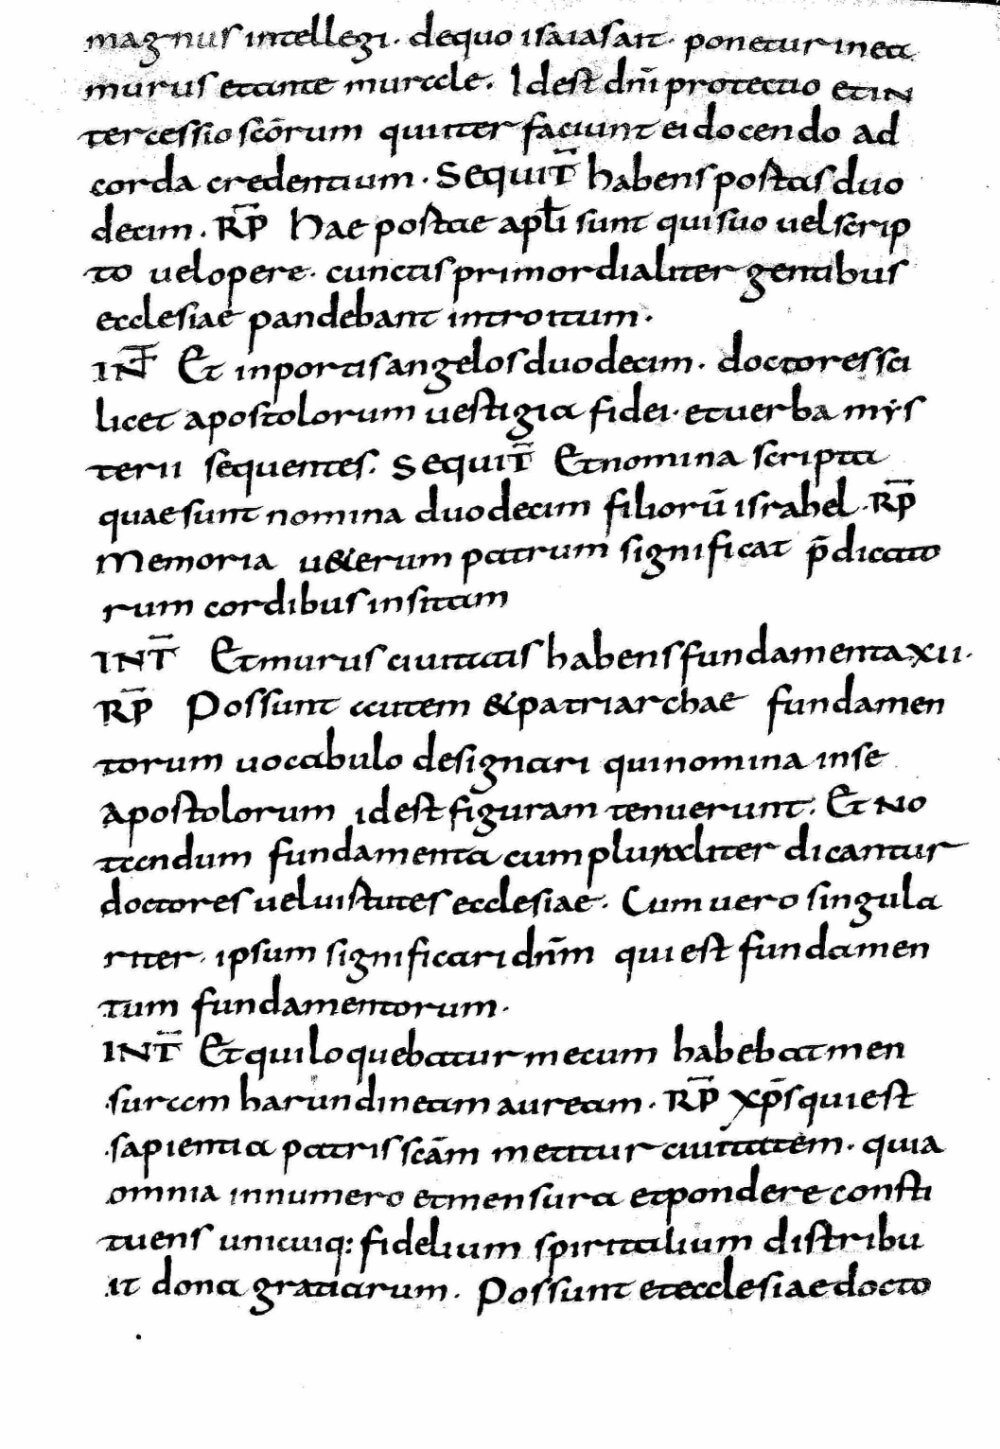 magnus intellegi. dequo isaias ait. ponetur in ea
murus et ante murale. Idest dñi protectio et in
tercessio scōrum qui inter faciunt ei docendo ad
corda credentium. Sequit̄ habens portas duo
decim. R̄P Hae portae apl̄i sunt qui suo vel scrip
to vel opere. cunctis primordialiter gentibus
ecclesiae pandebant introitum.
INT̄ Et in portis angelos duodecim. doctores sci
licet apostolorum vestigia fidei. et verba mẏs
terii sequentes. Sequit̄ Et nomina scripta
quae sunt nomina duodecim filiorū israhel. R̄P
Memoria ve&erum patrum significat p̄dicato
rum cordibus insitam
INT̄ Et murus civitatis habens fundamenta xii.
R̄P Possunt autem & patriarchae fundamen
torum vocabulo designari qui nomina in se
Apostolorum idest figuram tenuerunt. Et no
tandum fundamenta cum pluraliter dicantur
doctores vel virtutes ecclesiae. Cum vero singula
riter. ipsum significari dnm̄ qui est fundamen
tum fundamentorum.
INT̄ Et qui loquebatur mecum habebat men
suram harundineam auream. R̄P xp̄s qui est
sapientia patris scām metitur civitatem. quia
omnia in numero et mensura et pondere consti
tuens unicuiq: fidelium spiritalium distribu
it dona gratiarum. Possunt et ecclesiae docto